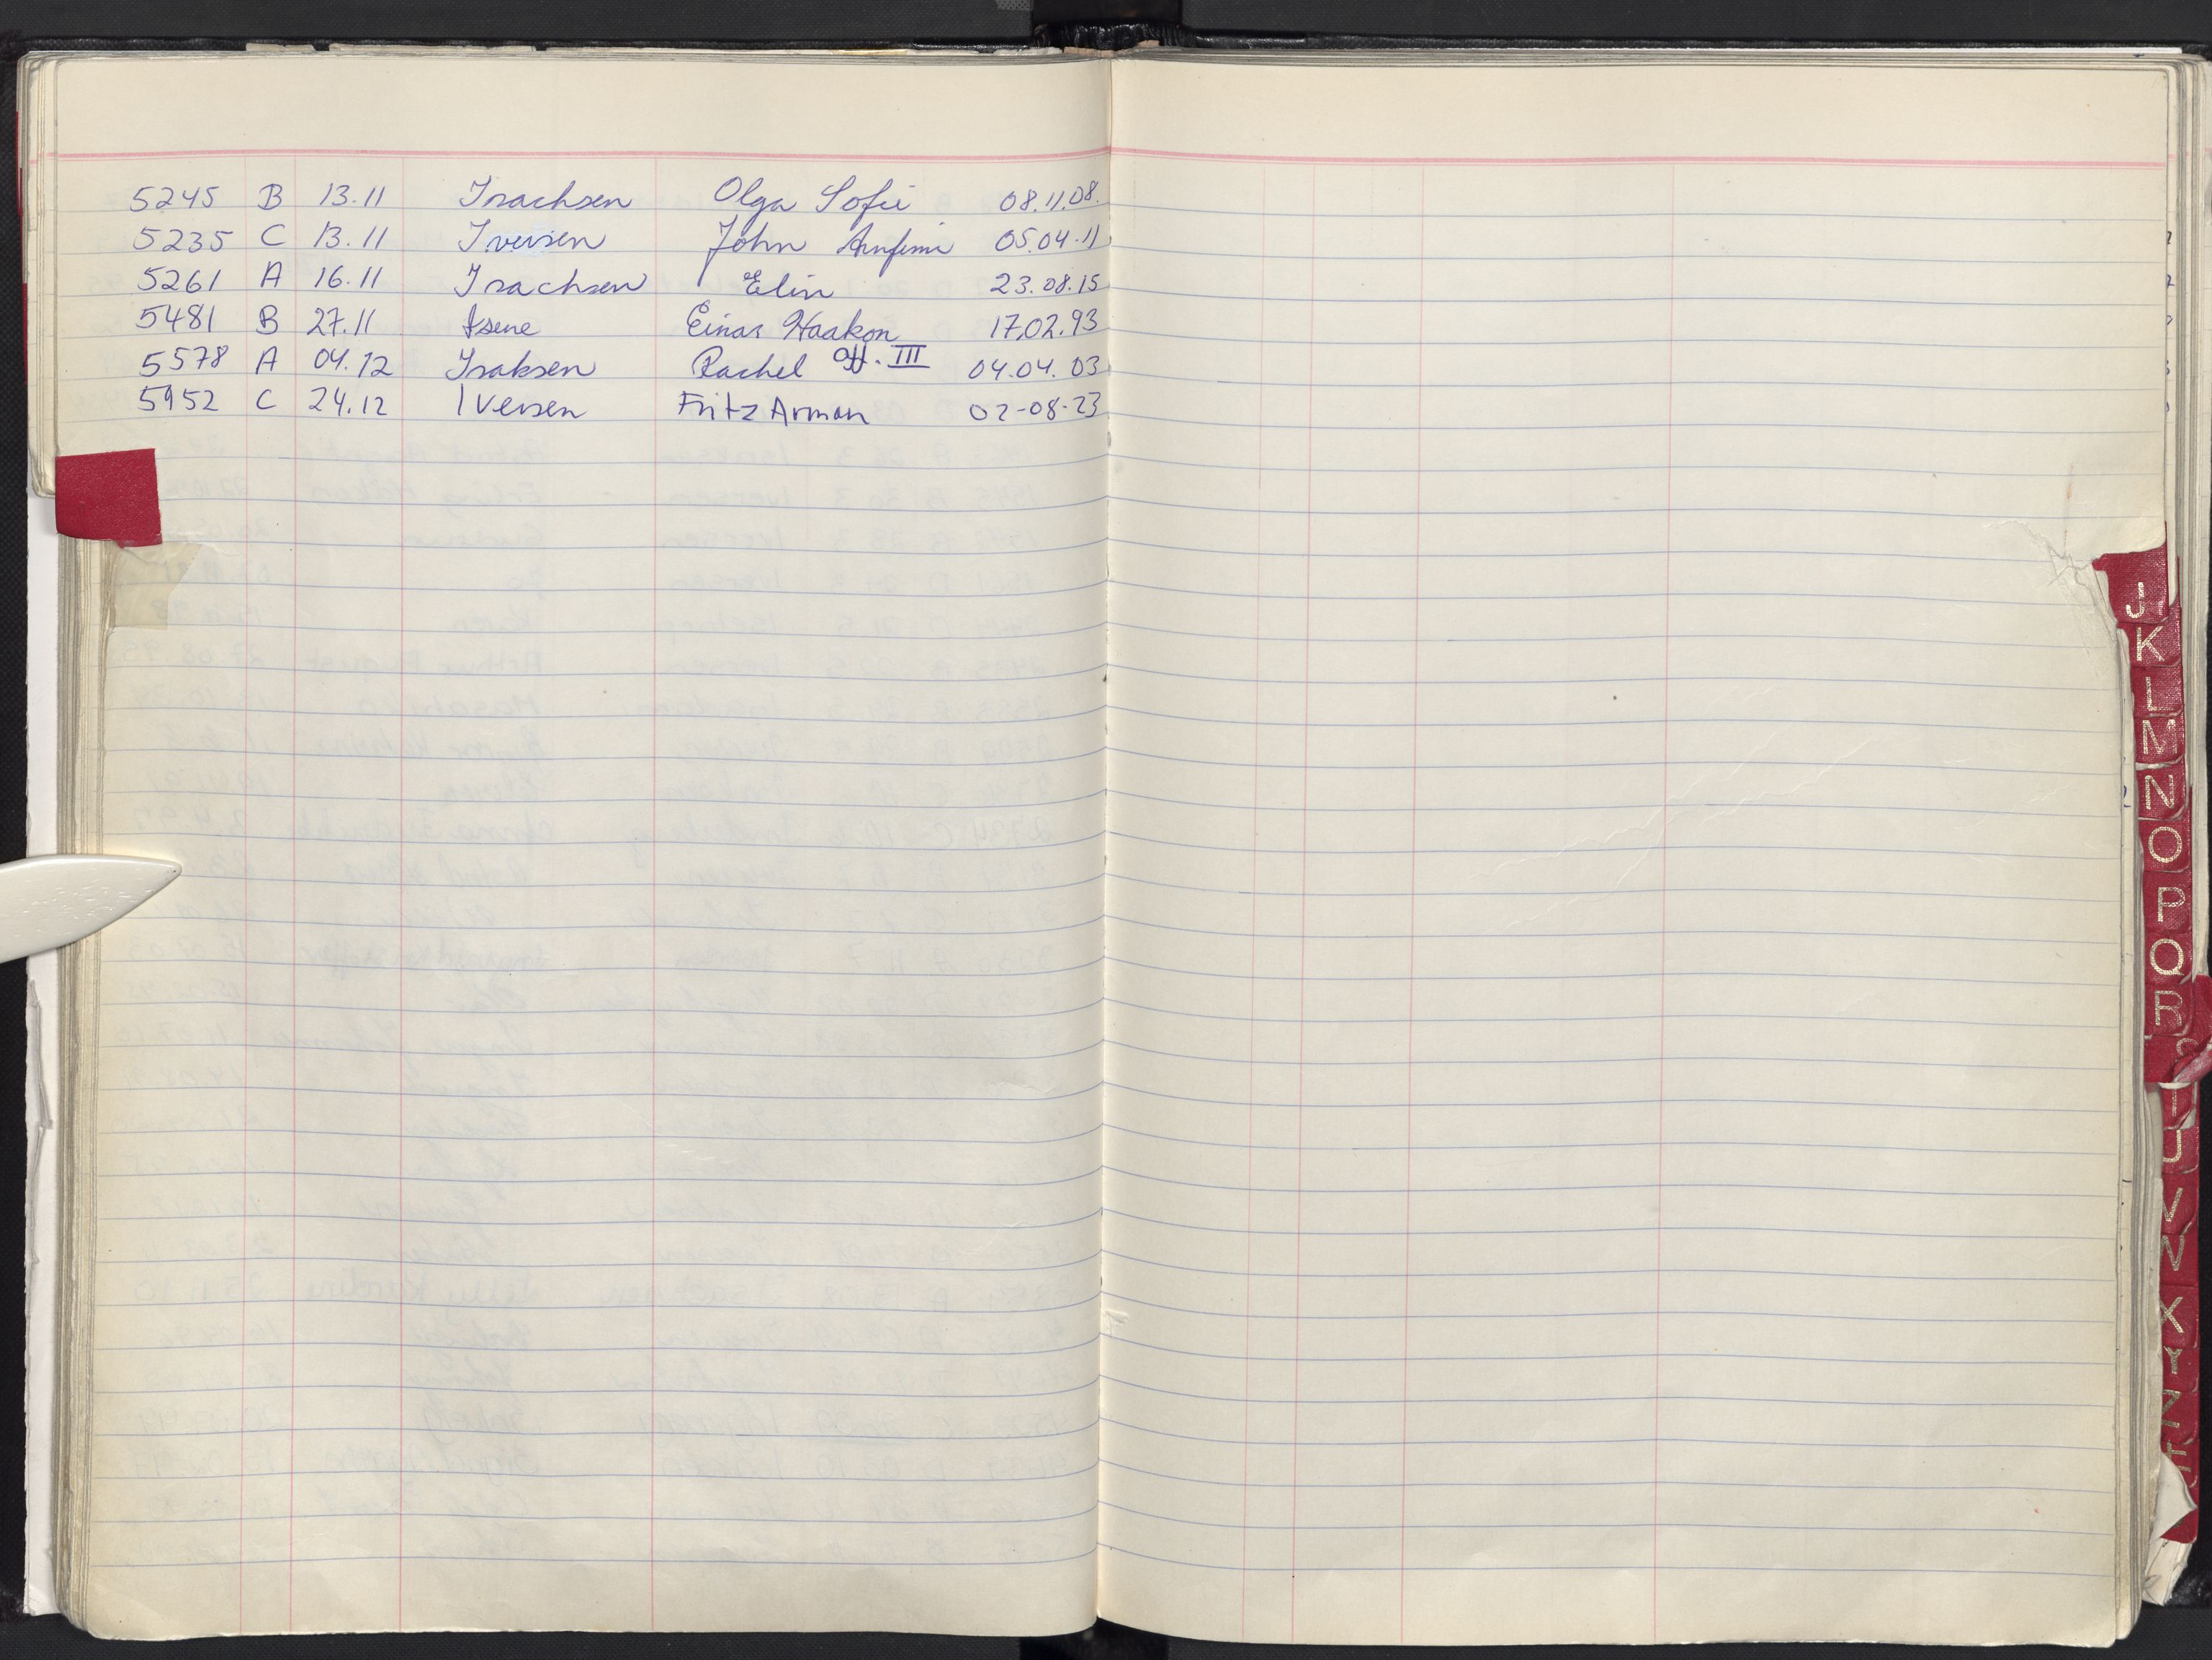 5245 B 13.11 Isachsen Olga Sofie 08.11.08.
5235 C 13.11 Iversen John Arnfinn 05.04.11
5261 A 16.11 Isachsen Elin 23.08.15
5481 B 27.11 Isene Einar Haakon 17.02.93
5578 A 04.12 Isaksen Rachel Off. III 04.04.03
5952 C 24.12 Iversen Fritz Arman 02-08-23
J
K
L
M
N
O
P
Q
R
S
T
U
V
W
X
Y
Z